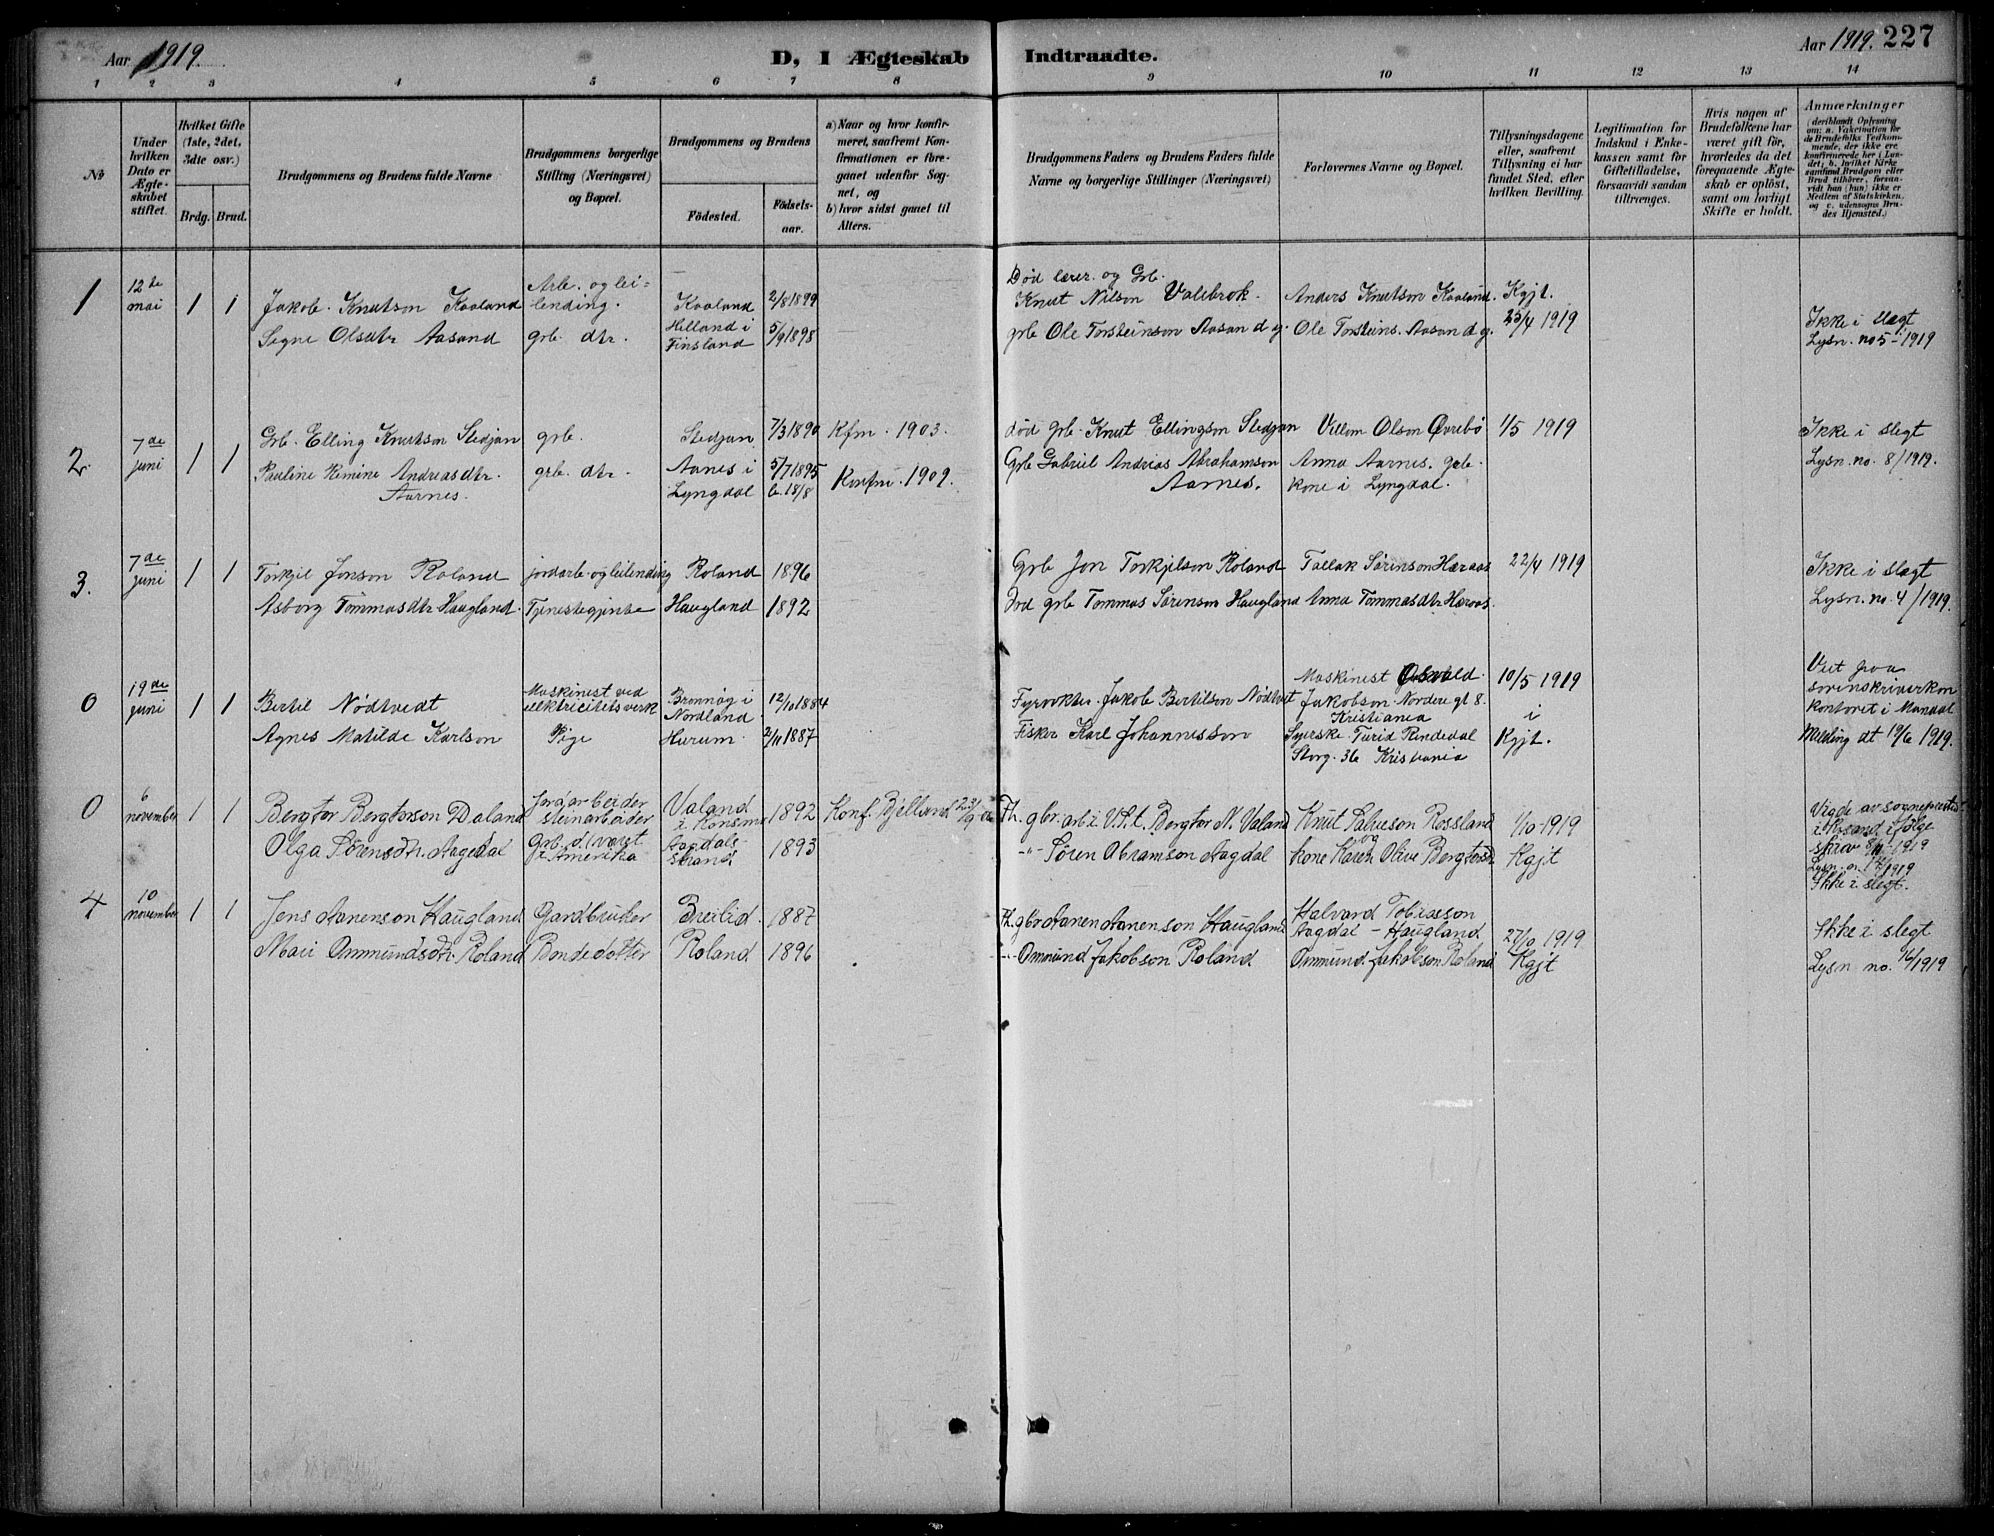 Aar 1919.
D, I Ægteskab Indtraadte.
Aar 1919. 227
1 2 3 4 5 6 7 8 9 10 11 12 13 14
No
Under hvilken Dato er Ægteskabet stiftet.
Hvilket Gifte (1ste, 2det, 3die osv.)
Brdg. Brud.
Brudgommens og Brudens fulde Navne
Brudgommens borgerlige Stilling (Næringsvei) og Bopæl.
Brudgommens og Brudens
Födested. Födselsaar.
a) Naar og hvor konfirmeret, saafremt Konfirmationen er foregaaet udenfor Sognet, og
b) hvor sidst gaaet til Alters.
Brudgommens Faders og Brudens Faders fulde Navne og borgerlige Stillinger (Næringsvei)
Forlovernes Navne og Bopæl.
Tillysningsdagene eller, saafremt Tillysning ei har fundet Sted, efter hvilken Bevilling.
Legitimation for Indskud i Enkekassen samt for Giftetilladelse, forsaavidt saadan tiltrænges.
Hvis nogen af Brudefolkene har været gift før, hvorledes da det foregaaende Ægteskab er oplöst, samt om lovligt Skifte er holdt.
Anmærkninger
(deriblandt Oplysning om: a. Vakcination for de Brudefolks Vedkommende, der ikke ere konfirmerede her i Landet; b. hvilket Kirkesamfund Brudgom eller Brud tilhører, forsaavidt han (hun) ikke er Medlem af Statskirken, og c. udensogns Brudes Hjemsted.)
1 12te mai 1 1
Jakob Knutson Kaaland
Arb. og leilending.
Kaaland 2/8 1899
Død lærer og Grb. Knut Nilson Valebrok.
Anders Knutson Kaaland.
Kgjt. 25/4 1919
Signe Olsdtr Aasand
grb. dtr.
Helland i Finsland 5/9 1898
grb Ole Torsteinson Aasand g.
Ole Torsteins. Aasand g.
Ikke i slegt
Lysn. no 5 - 1919
2. 7de juni 1 1
Grb. Elling Knutson Stedjan
grb.
Stedjan 7/3 1890
Kfm. 1903.
død grb. Knut Ellingson Stedjan
Villem Olson Øvrebø
1/5 1919
Pauline Remine Andreasdtr. Aarnes.
grb. dtr.
Aanes i Lyngdal 5/7 1895 b. 18/8
Konfm. 1909.
Grb Gabriel Andreas Abrahamson Aarnes.
Anna Aarnes. grb. kone i Lyngdal.
Ikke i slegt
Lysn. no. 8/1919.
3. 7de juni 1 1
Torkjel Jonson Roland
jordarb. og leilending
Roland 1896
Grb Jon Torkjelson Roland
Tallak Sørinson Høraas
22/4 1919
Asborg Tommasdtr Haugland.
Tjenestegjente
Haugland 1892
Død grb Tommas Sørenson Haugland
Anna Tommasdtr Høraas.
Ikke i slegt
Lysn. no. 4/1919.
0 19de juni 1 1
Bertil Nødtvedt
Maskinest ved elektricitetsverk
Brønnøy i Nordland 12/10 1884
Fyrvokter Jakob Bertilson Nødtvet
Maskinest Jakobson Nordere gt 8. Kristiania
10/5 1919
Agnes Matilde Karlson
Pige
Hurum 2/11 1887
Fisker Karl Johannesson
Syerske Turid Rindedal Storg. 36 Kristiania
i Kgjt.
Viet paa sorenskriverkontoret i Mandal
Melding dt 19/6 1919.
0 6 november 1 1
Bergtor Bergtorson Daland
Jordarbeider steinarbeider
Valand i Konsmo 1892
Konf. Bjelland 23/9
Fh. gbr. arb i V.St. Bergtor N. Valand
Knut Salveson Rossland
1/10-1919
Olga Sørensdtr. Aagedal
Grb. d (været i Amerika
Aagdalsstrand 1893
-"- Søren Abramson Aagdal
og kone Karen Olive Bergtorsdr
Kgjt
Vigde av sogneprest i Krsand ifølge skriv 8/11-1919
Lysn. n. 1919
Ikke i slegt.
4 10 november 1 1
Jens Aanenson Haugland
Gardbruker
Breilid. 1887
Fh. gbr Aanen Aanenson Haugland
Halvard Tobiasson Aagdal - Haugland
27/10 1919
Mari Ommundsdtr. Roland
Bondedotter
Roland 1896
-"- Ommund Jakobson Roland
Ommund Jakobson Roland
Kgjt
Ikke i slegt
Lysn no. 16/1919